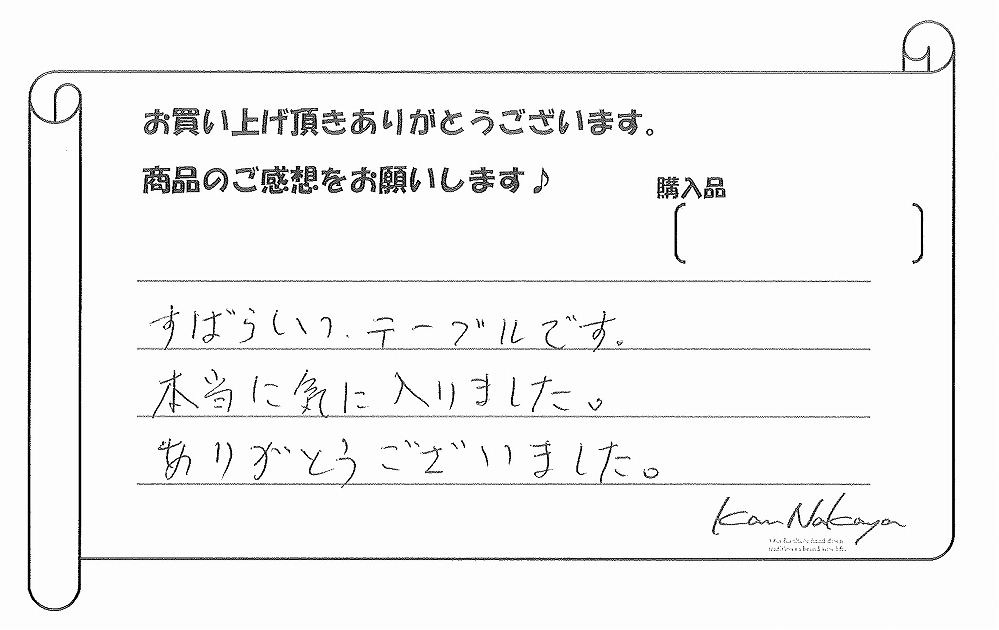 お買い上げ頂きありがとうございます。
商品のご感想をお願いします♪
購入品
すばらしいつ、テーブルです。
本当に気に入りました。
ありがとうございました。
Kan Nakaya